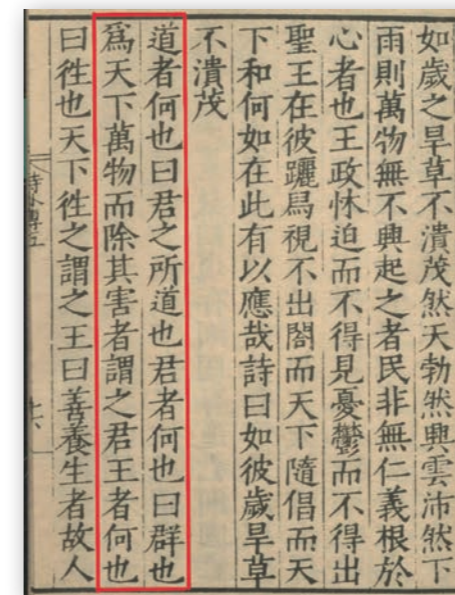 如歲之旱草不潰茂然天勃然興雲沛然下
雨則萬物無不興起之者民非無仁義根於
心者也王政怵迫而不得見憂鬱而不得出
聖王在彼躧舄視不出閤而天下隨倡而天
下和何如在此有以應哉詩曰如彼歲旱草
不潰茂
道者何也曰君之所道也君者何也曰群也
爲天下萬物而除其害者謂之君王者何也
曰徃也天下徃之謂之王曰善養生者故人